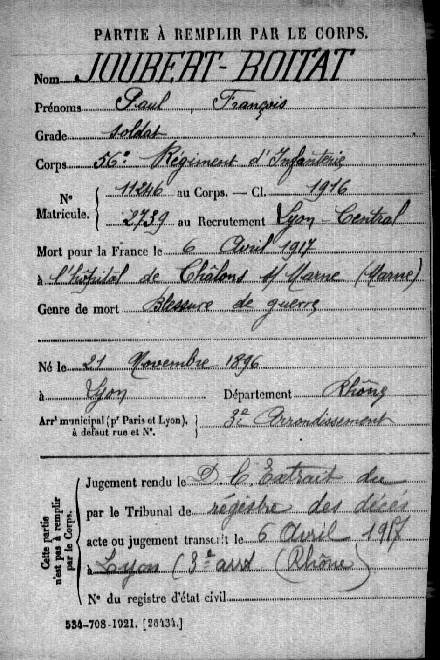 PARTIE À REMPLIR PAR LE CORPS.
Nom JOUBERT-BOITAT
Prénoms Paul François
Grade soldat
Corps 56e Régiment d'Infanterie
N° Matricule. { 11246 au Corps. — Cl. 1916
2739 au Recrutement Lyon-Central
Mort pour la France le 6 Avril 1917
à l'hôpital de Châlons s/ Marne (Marne)
Genre de mort Blessure de guerre
Né le 21 Novembre 1896
à Lyon Département Rhône
Arrt municipal (pr Paris et Lyon), à défaut rue et N°. } 3e Arrondissement
Cette partie n'est pas à remplir par le Corps.
Jugement rendu le D. C. Extrait du
par le Tribunal de régistre des décès
acte ou jugement transcrit le 6 Avril 1917
à Lyon (3e arrt (Rhône)
N° du registre d'état civil
534-708-1921. [26434.]